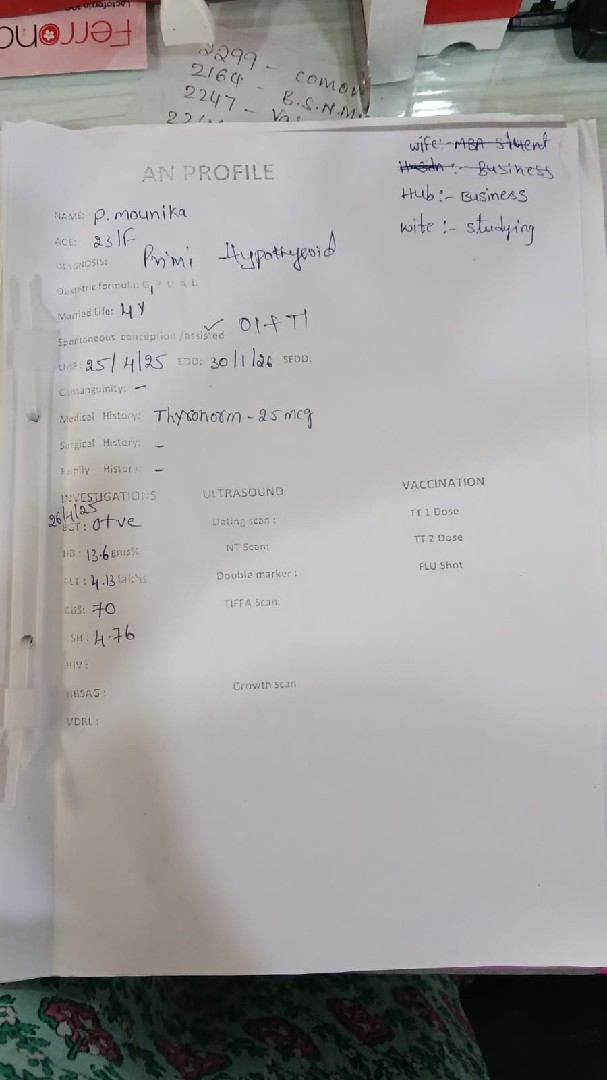 Ferrono
2299 - comow
2164 - B.S.N.M
2247 -
wife:- MBA stuent
Business
Hub:- Business
wife:- studying
AN PROFILE
NAME: P. mounika
AGE: 23/F
DIAGNOSIS: Primi Hypothyroid
Obstetric formula: G1 P U A L
Married Life: 4Y
Spontaneous conception /assisted ✓ OI + TI
LMP: 25/4/25 EDD: 30/1/26 SEDD:
Consanguinity: -
Medical History: Thyronorm - 25 mcg
Surgical History: -
Family History: -
INVESTIGATIONS ULTRASOUND VACCINATION
26/4/25
BGT: O+ve Dating scan: TT 1 Dose
HB: 13.6 gms% NT Scan: TT 2 Dose
PLT: 4.13 lakhs Double marker: FLU Shot
RBS: 70 TIFFA Scan:
TSH: 4.76
HIV:
HBSAG: Growth scan
VDRL: